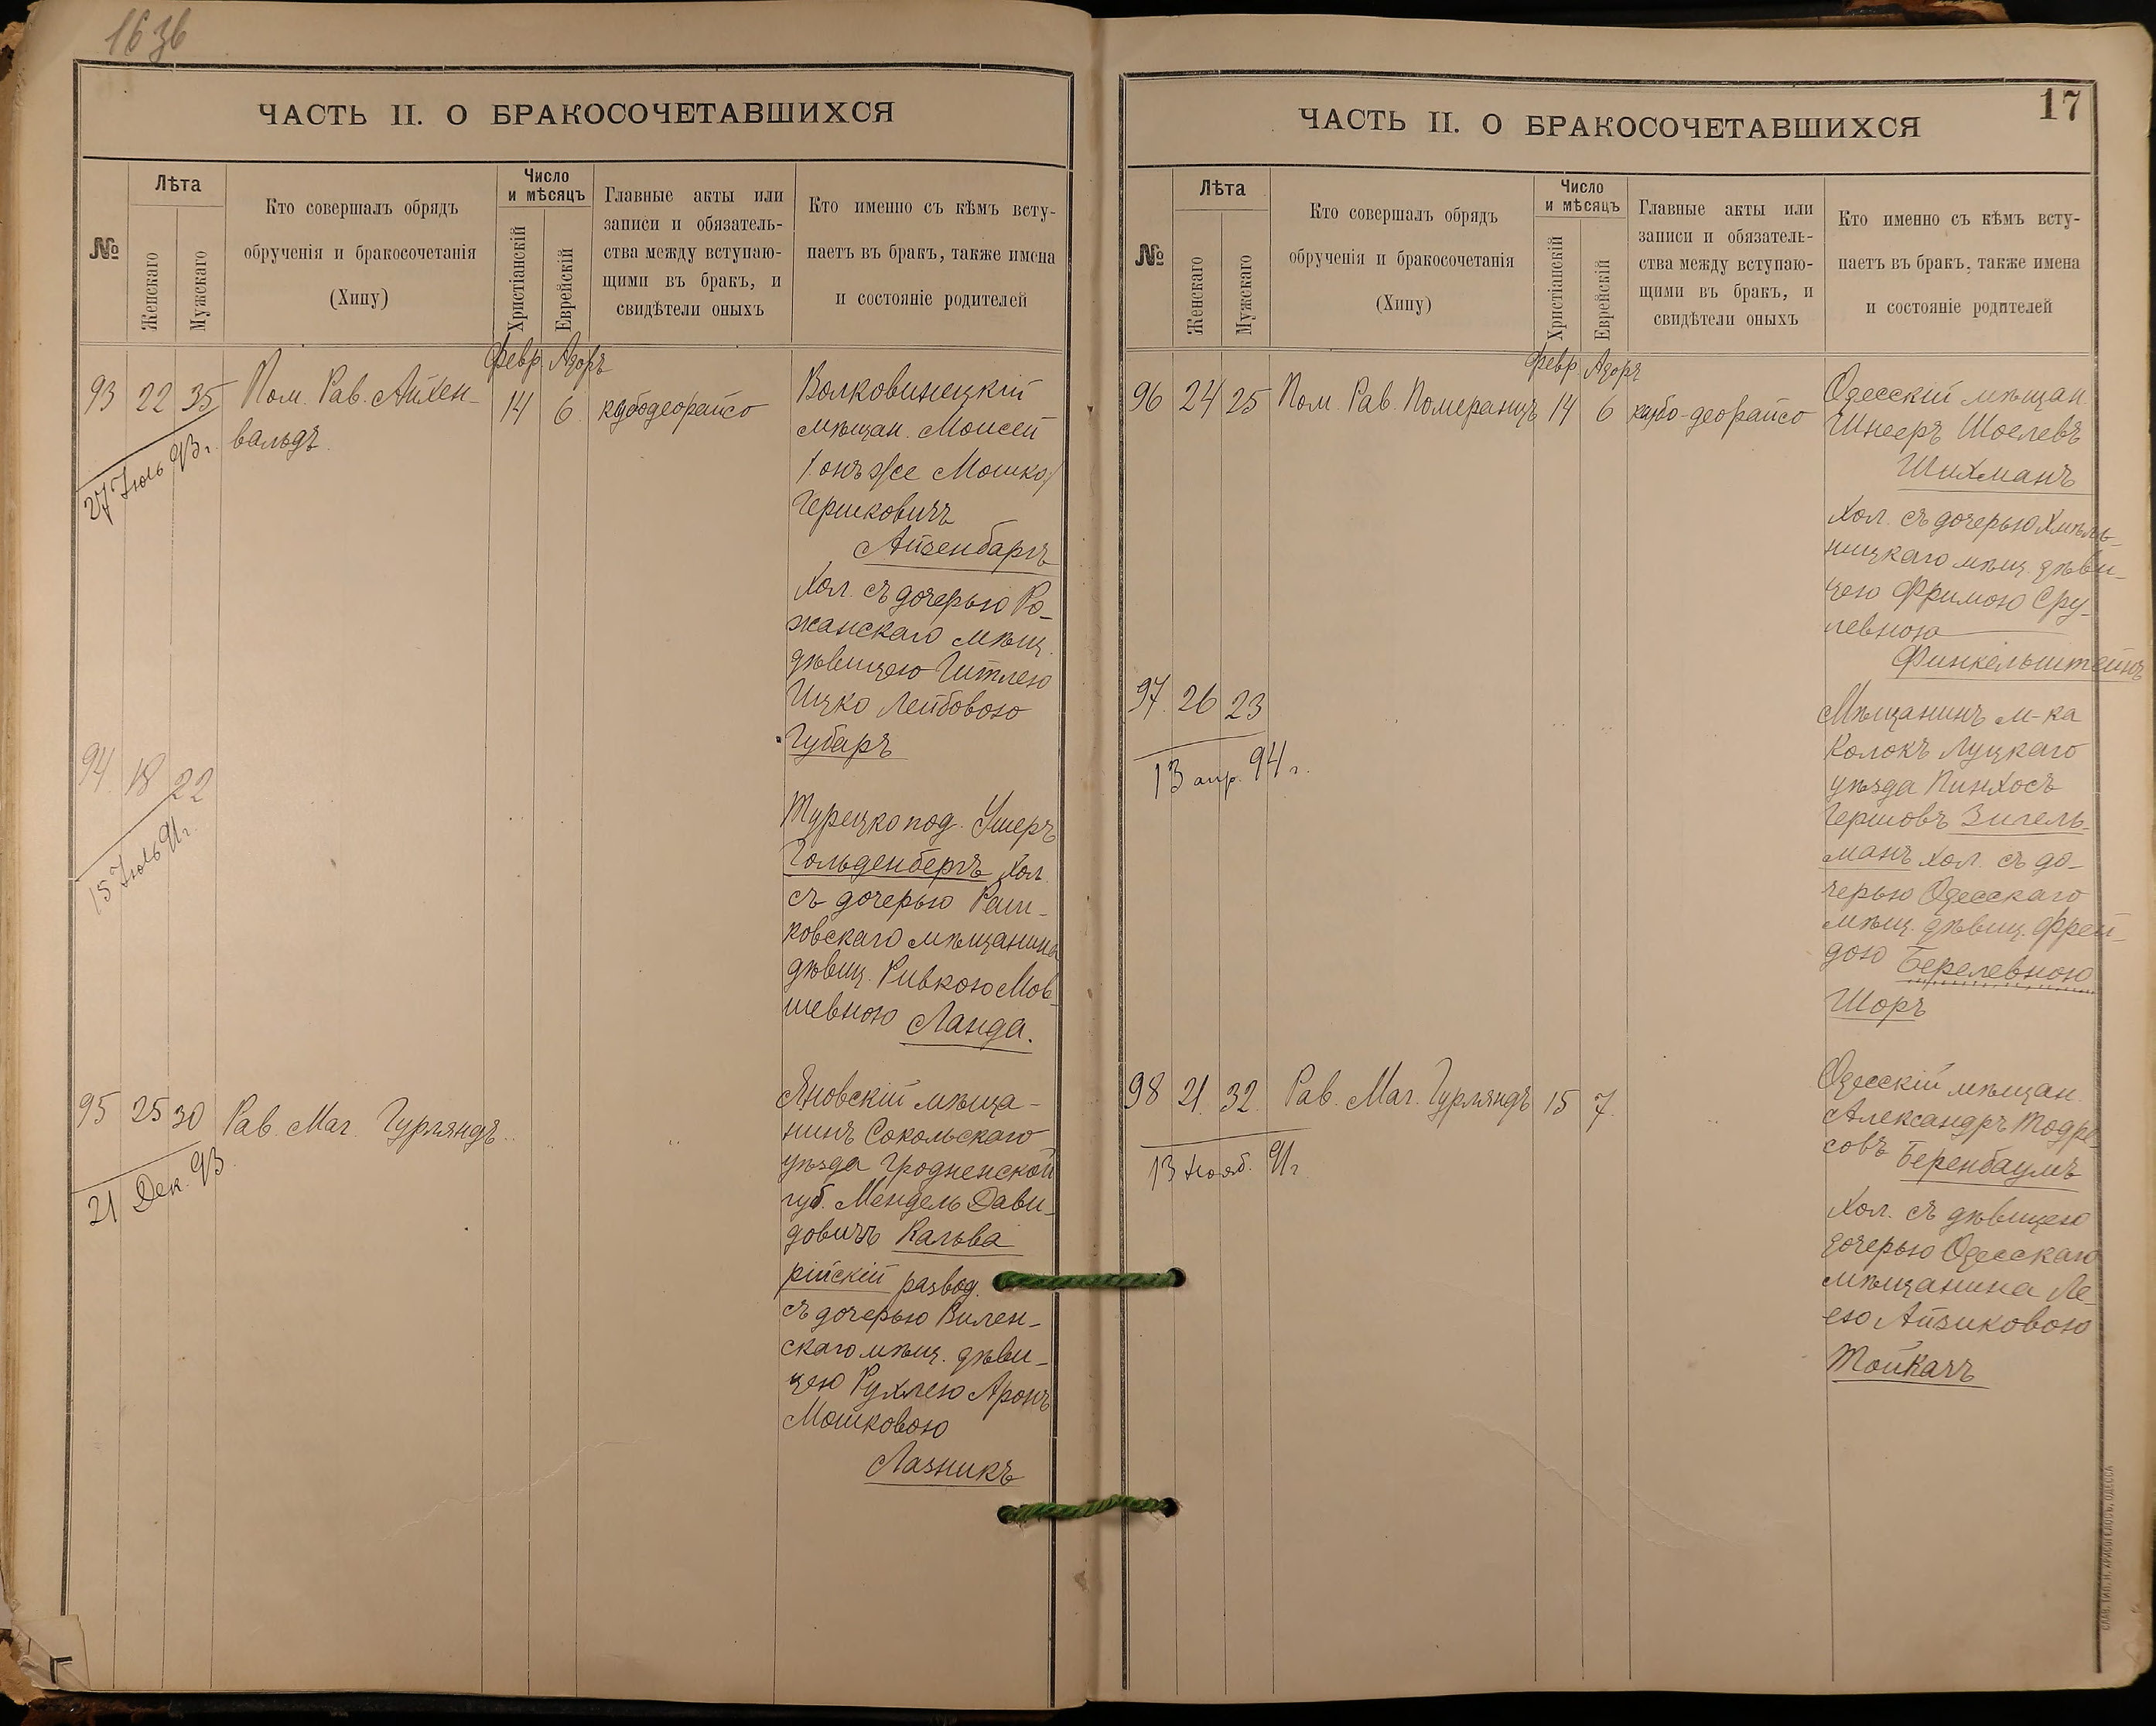 16 зб
ЧАСТЬ II. О БРАКОСОЧЕТАВШИХСЯ
№
Лѣта
Женскаго
Мужскаго
Кто совершалъ обрядъ
обрученія и бракосочетанія
(Хипу)
Число
и мѣсяцъ
Христіанскій
Еврейскій
Главные акты или
записи и обязатель-
ства между вступаю-
щими въ бракъ, и
свидѣтели оныхъ
Кто именно съ кѣмъ всту-
паетъ въ бракъ, также имена
и состояніе родителей
Февр. Адоръ
93 22 35 Пом. Рав. Айхен-
вальдъ
14 6
27 Іюль 93 г.
Волковинецкій
мѣщан. Моисей
/онъ же Мошко/
Гершковичъ
Айзенбаргъ
Хол. съ дочерью Ро-
жанскаго мѣщ.
дѣвицею Гитлею
Ицко Лейбовою
Губаръ
94. 18 22
15 Іюль 91 г.
Турецко под. Ушеръ
Гольденбергъ Хол.
съ дочерью Раш-
ковскаго мѣщанина
дѣвиц. Ривкою Мов-
шевною Ланда.
95 25 30 Рав. Маг. Гурляндъ
21 Дек. 93
Яновскій мѣща-
нинъ Сокольскаго
уѣзда Гродненской
губ. Мендель Дави-
довичъ Кальва
рійскій развод.
съ дочерью Вилен-
скаго мѣщ. дѣви-
цею Рухлею Аронъ
Мошковою
Лазникъ
17
ЧАСТЬ II. О БРАКОСОЧЕТАВШИХСЯ
№
Лѣта
Женскаго
Мужскаго
Кто совершалъ обрядъ
обрученія и бракосочетанія
(Хипу)
Число
и мѣсяцъ
Христіанскій
Еврейскій
Главные акты или
записи и обязатель-
ства между вступаю-
щими въ бракъ, и
свидѣтели оныхъ
Кто именно съ кѣмъ всту-
паетъ въ бракъ, также имена
и состояніе родителей
Февр. Адоръ
96 24 25 Пом. Рав. Померанцъ 14 6
Одесскій мѣщан
Шнееръ Шоелевъ
Шихманъ
Хол. съ дочерью Хмѣль-
ницкаго мѣщ. дѣви-
цею Фримою Сру-
левною
Финкельштейнъ
97. 26 23
13 апр. 94 г.
Мѣщанинъ м-ка
Колокъ Луцкаго
уѣзда Пинхосъ
Гершовъ Зигель-
манъ хол. съ до-
черью Одесскаго
мѣщ. дѣвиц. Фрей-
дою Берелевною
Шоръ
98 21. 32. Рав. Маг. Гурляндъ 15 7.
13 Нояб. 91 г
Одесскій мѣщан.
Александръ Тодре-
совъ Беренбаумъ
Хол. съ дѣвицею
дочерью Одесскаго
мѣщанина Ле-
ею Айзиковою
Тойкачъ